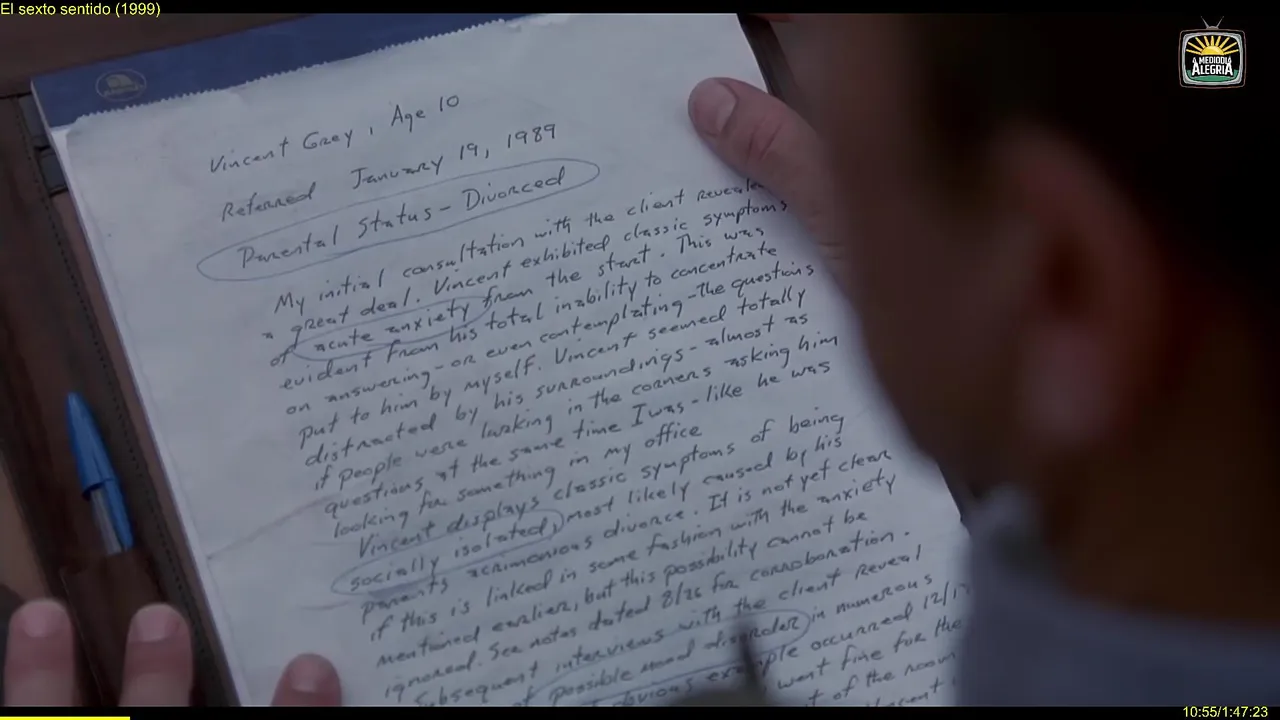 El sexto sentido (1999)
A MEDIODÍA
ALEGRÍA
Vincent Grey, Age 10
Referred January 19, 1989
Parental Status - Divorced
My initial consultation with the client revealed
a great deal. Vincent exhibited classic symptoms
of acute anxiety from the start. This was
evident from his total inability to concentrate
on answering - or even contemplating - the questions
put to him by myself. Vincent seemed totally
distracted by his surroundings - almost as
if people were lurking in the corners asking him
questions at the same time I was - like he was
looking for something in my office
Vincent displays classic symptoms of being
socially isolated, most likely caused by his
parents acrimonious divorce. It is not yet clear
if this is linked in some fashion with the anxiety
mentioned earlier, but this possibility cannot be
ignored. See notes dated 8/26 for corroboration.
Subsequent interviews with the client reveal
possible mood disorder in numerous
obvious example occurred 12/1
went fine for the
of the room
10:55/1:47:23